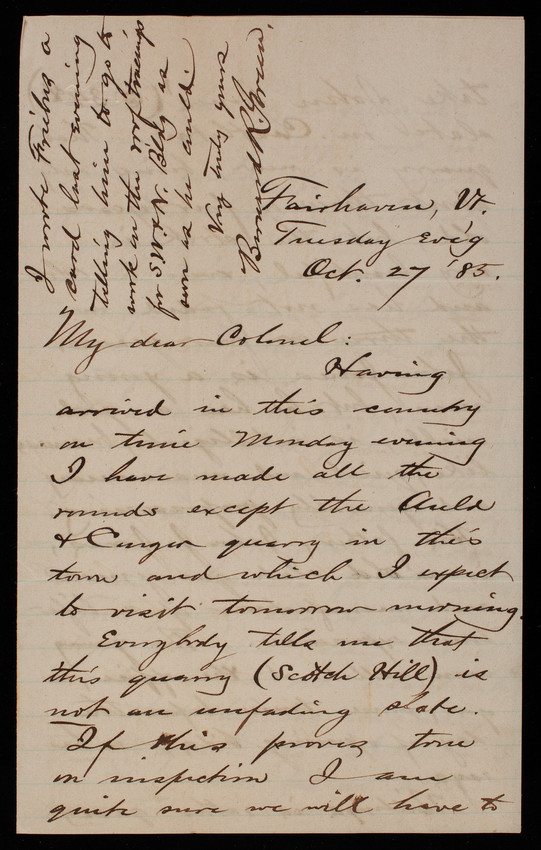 Fairhaven, Vt.
Tuesday Eve'g
Oct. 27 '85.
My dear Colonel:
Having
arrived in this country
on time Monday evening
I have made all the
rounds except the Auld
& Conger quarry in this
town and which I expect
to visit tomorrow morning.
Everybody tells me that
this quarry (Scotch Hill) is
not an unfading slate.
If this proves true
on inspection I am
quite sure we will have to
I wrote a
card last evening
telling him to go to
work on the roof
for S W & N. B'ld'g as
soon as he could.
Very truly yours
Bernard R. Green.